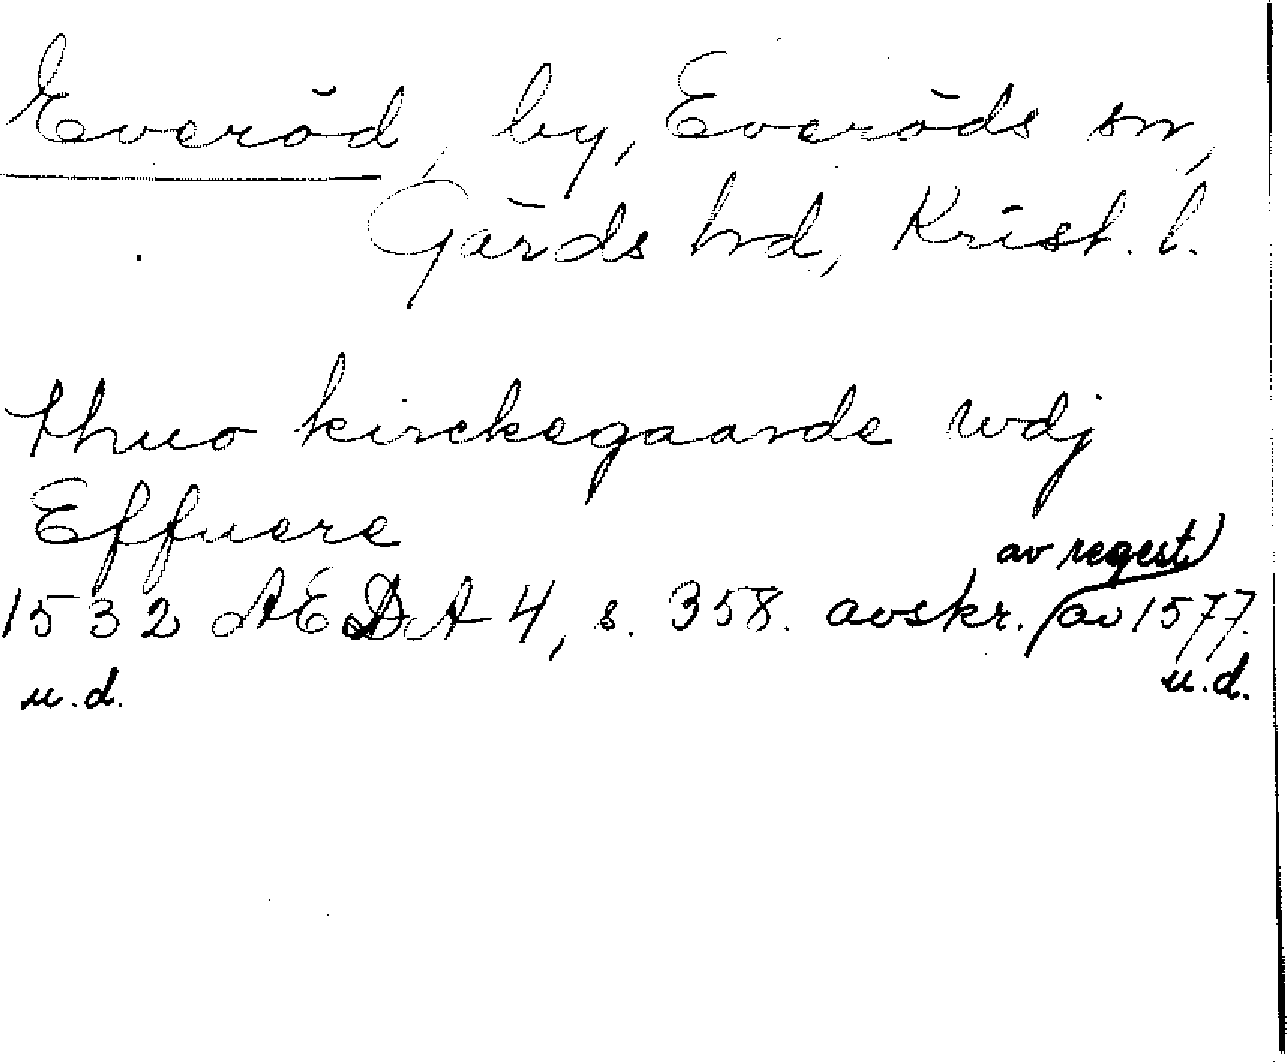 Everöd, by, Everöds sn,
Gärds hd, Krist. l.
thuo kirckegaarde wdj
Effuere
av regest)
1532 AEDA 4, s. 358. avskr. (av 1577.
u.d. u.d.